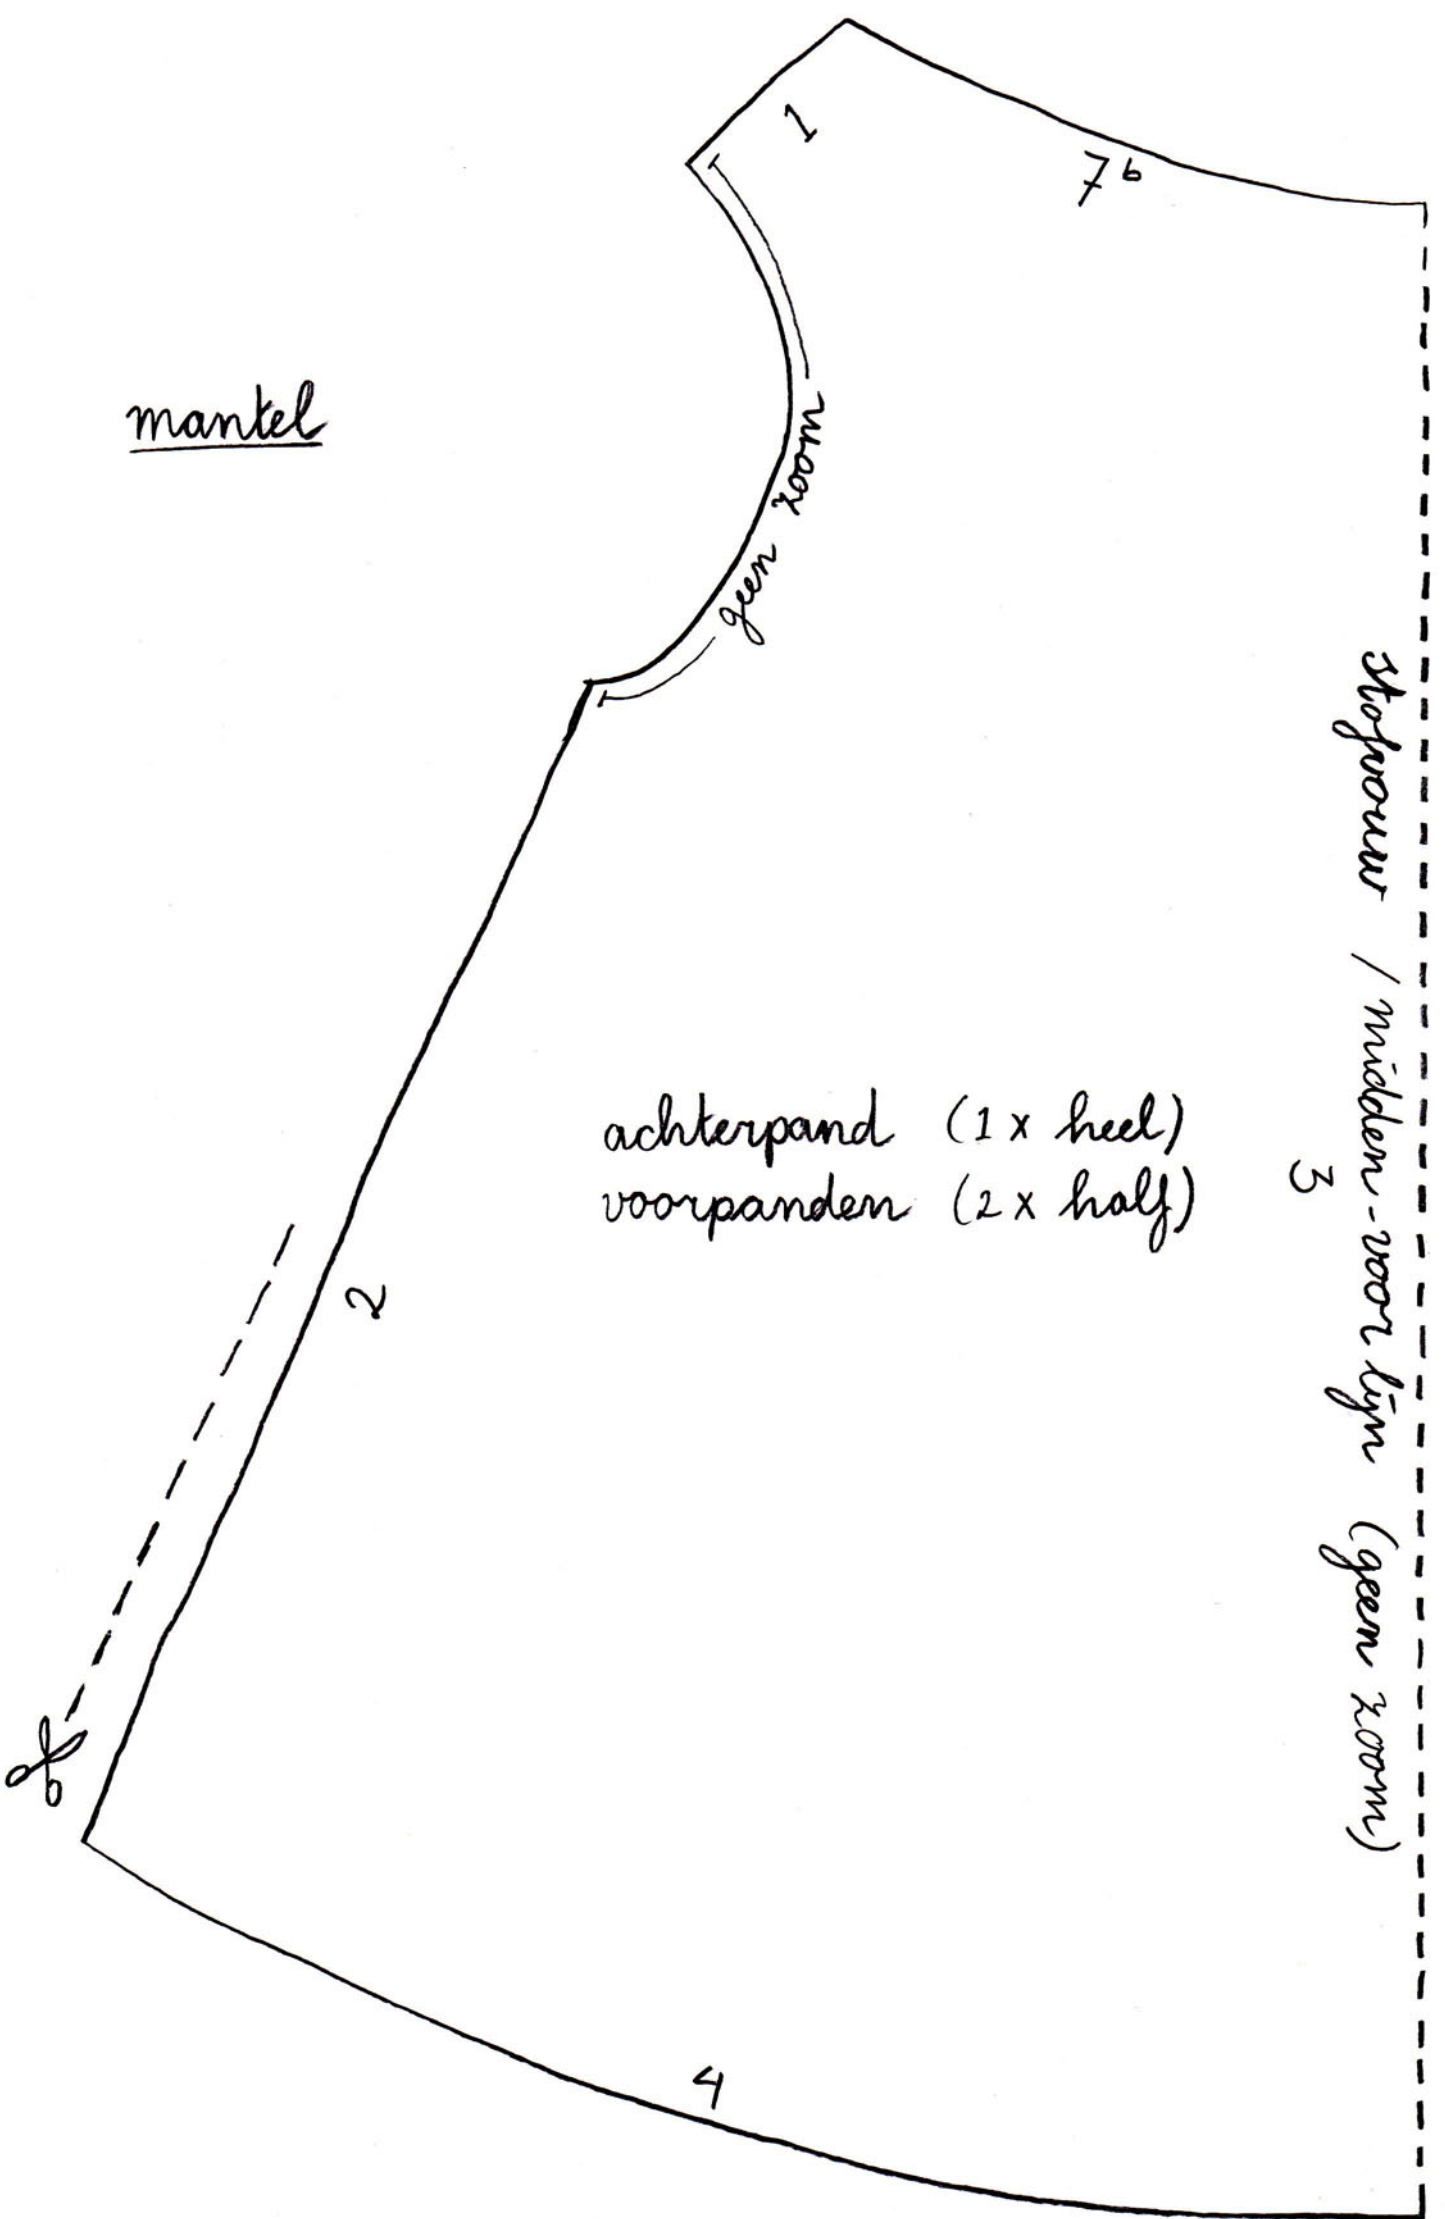 1
7b
mantel
geen zoom
stofvouw / midden-voor lijn (geen zoom)
achterpand (1 x heel)
voorpanden (2 x half)
3
2
4